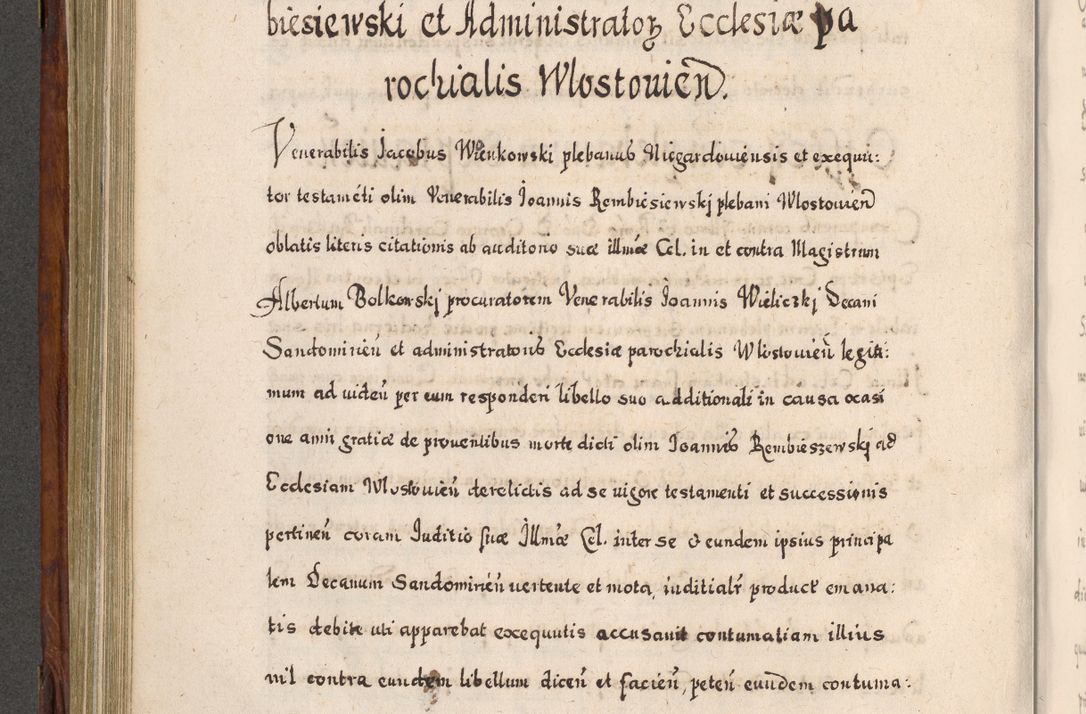 biesiewski et Administratoꝝ Ecclesiæ pa
rochialis Wlostouień.
Venerabilis Jacobus Wienkowski plebanus Niegardouiensis et exequu:
tor testaméti olim Venerabilis Joannis Rembiesiewskj plebani Wlostouień
oblatis literis citationis ab auditorio suæ illmæ Cel. in et contra Magistrum
Albertum Bolkowskj procuratorem Venerabilis Joannis Wieliczkj Decani
Sandomirień et administratoris Ecclesiæ parochialis Wlostouień legiti:
mum ad uideń per eum responderi libello suo additionali in causa ocasi
one anni gratiæ de prouentibus morte dicti olim Joannis Rembieszewskj ad
Ecclesiam Wlostouień derelictis ad se uigore testamenti et successionis
pertineń coram Juditio suæ Illmæ Cel. inter se & eundem ipsius principa
lem Decanum Sandomirień uertente et mota, iuditialr product emana:
tis debite uti apparebat exequutis accusauit contumatiam illius
nil contra eundem libellum diceń et facień, peteń eundem contuma: